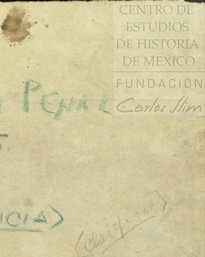 CENTRO DE
ESTUDIOS
DE HISTORIA
DE MEXICO
FUNDACIÓN
Carlos Slim
PENAL